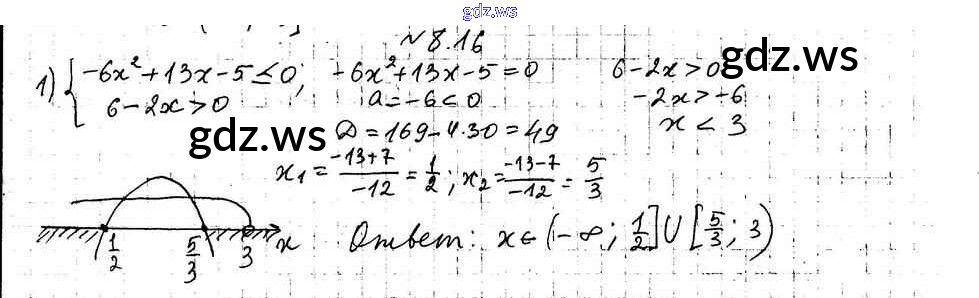 gdz.ws
№ 8.16
1) { -6x² + 13x - 5 ≤ 0;   -6x² + 13x - 5 = 0   6 - 2x > 0
6 - 2x > 0   a = -6 < 0   -2x > -6
gdz.ws   D = 169 - 4·30 = 49   x < 3
x₁ = (-13+7)/(-12) = 1/2; x₂ = (-13-7)/(-12) = 5/3
1/2   5/3   3   x   Ответ: x ∈ (-∞; 1/2] ∪ [5/3; 3)
gdz.ws
gdz.ws